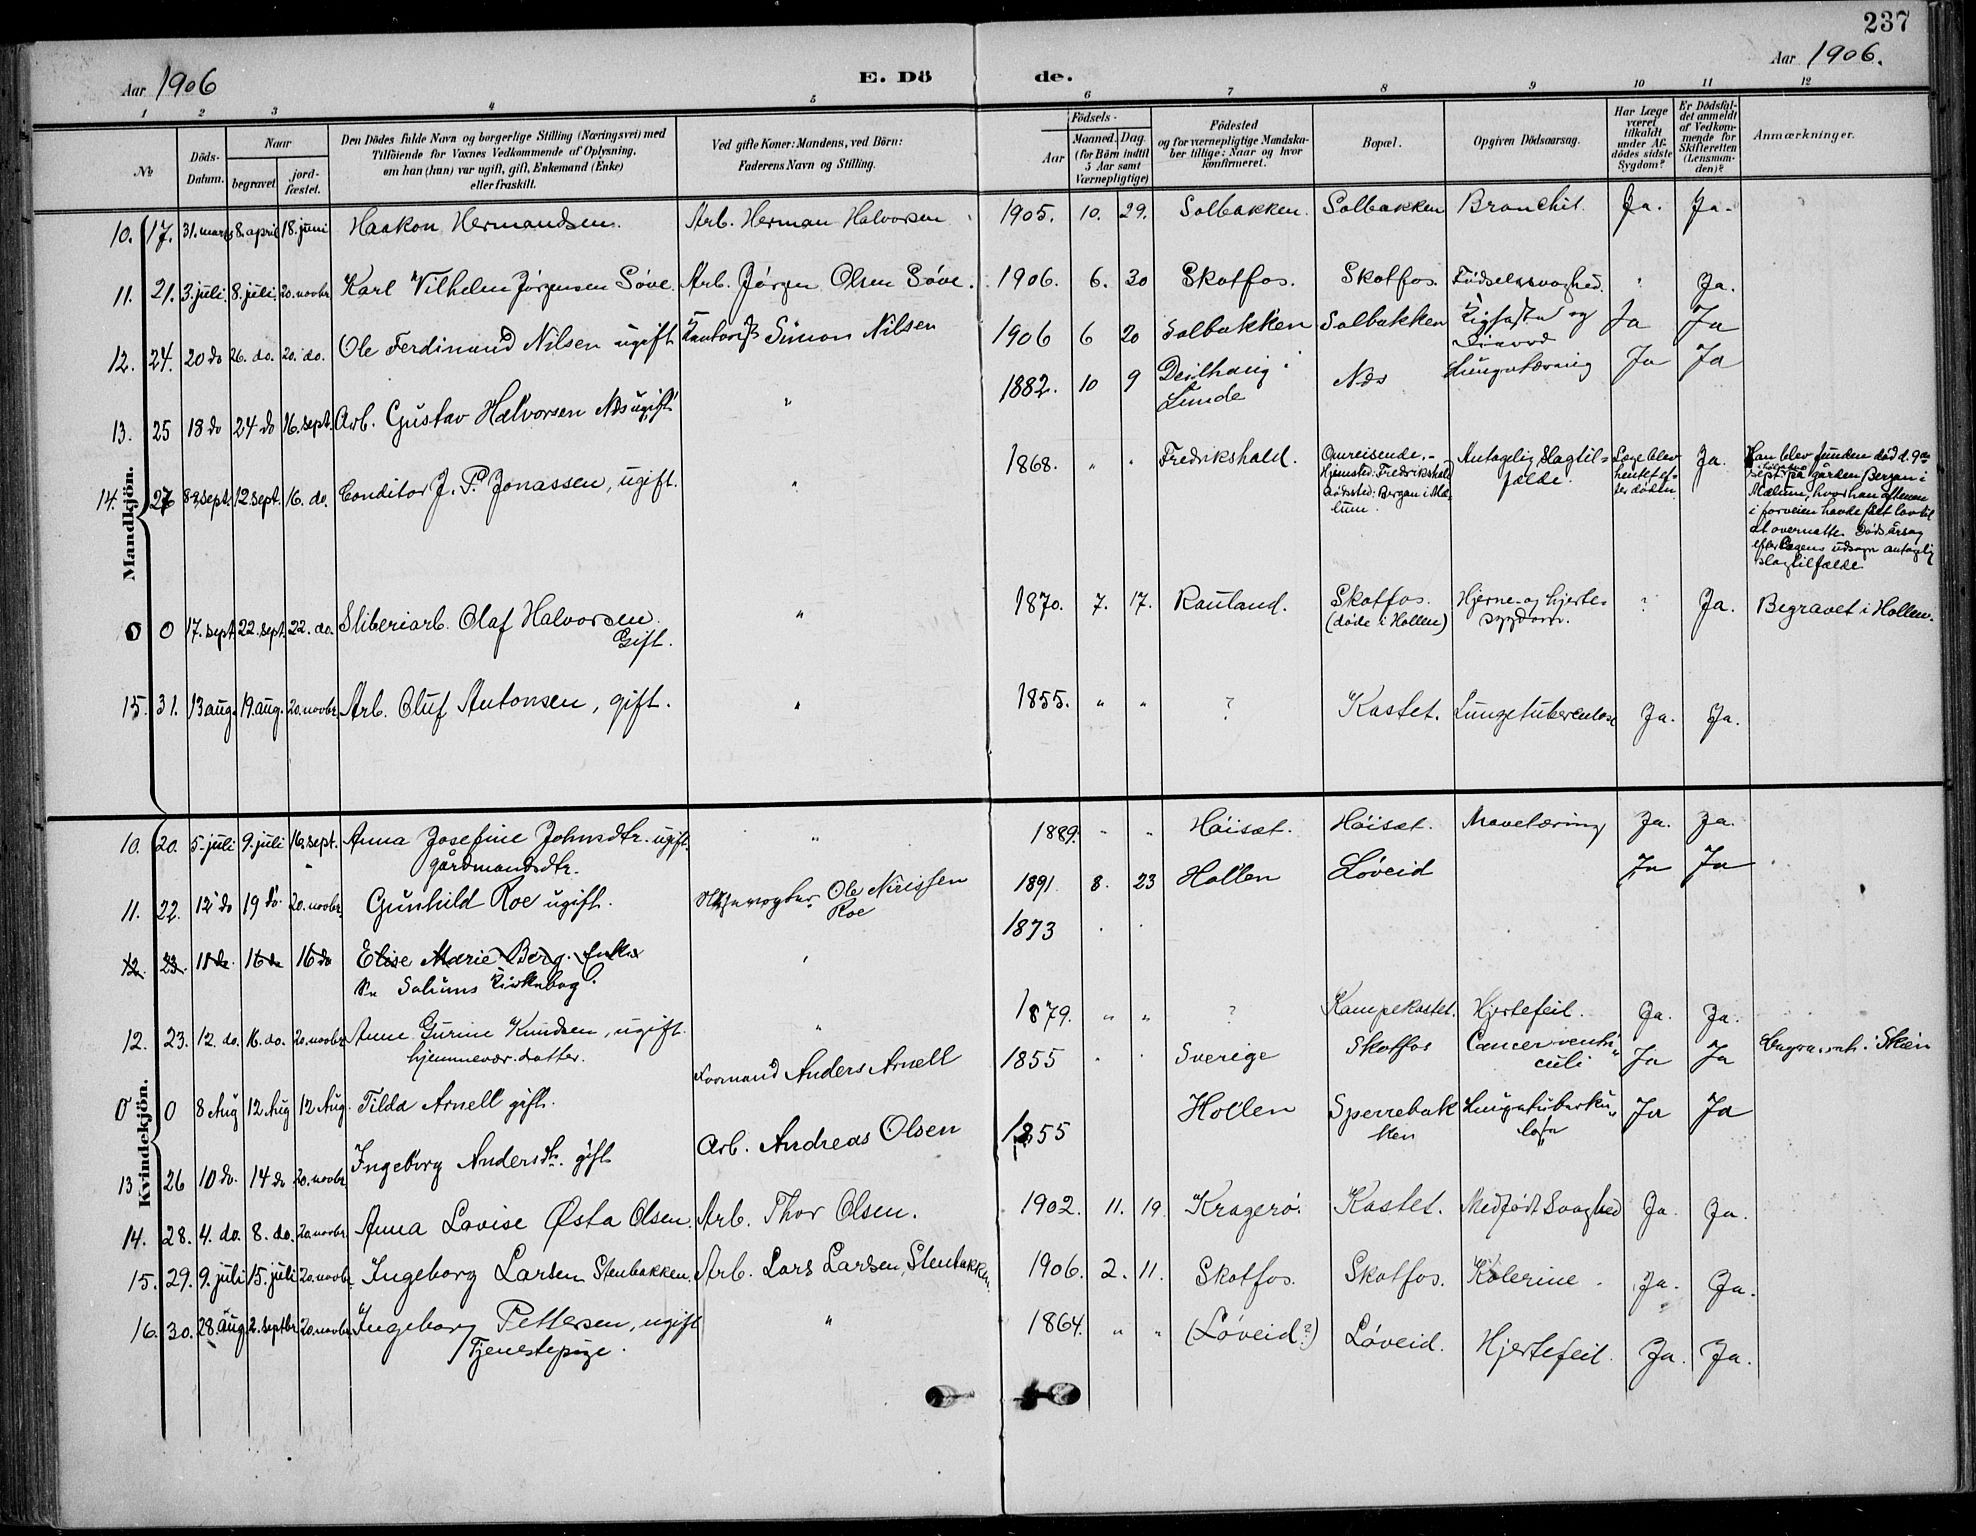 237
Aar 1906
E. Dö de.
Aar 1906.
1 2 3 4 5 6 7 8 9 10 11 12
№
Döds-Datum.
Naar
begravet
jord-fæstet.
Den Dödes fulde Navn og borgerlige Stilling (Næringsvei) med
Tilföiende for Voxnes Vedkommende af Oplysning,
om han (hun) var ugift, gift, Enkemand (Enke)
eller fraskilt.
Ved gifte Koner: Mandens, ved Börn:
Faderens Navn og Stilling.
Födsels-
Aar
Maaned. Dag.
(for Börn indtil
5 Aar samt
Værnepligtige)
Födested
og for værnepligtige Mandska-
ber tillige: Naar og hvor
konfirmeret.
Bopæl.
Opgiven Dödsaarsag.
Har Læge
været
tilkaldt
under Af-
dödes sidste
Sygdom?
Er Dödsfal-
det anmeldt
af Vedkom-
mende for
Skifteretten
(Lensman-
den)?
Anmærkninger.
Mandkjön.
10. 17. 31. marts 8. april 18. juni Haakon Hermandsen. Arb. Herman Halvorsen 1905. 10. 29. Solbakken. Solbakken Bronchit. Ja. Ja.
11. 21. 3. juli 8. juli 20. novbr. Karl Vilhelm Jørgensen Søve. Arb. Jørgen Olsen Søve. 1906. 6. 30 Skotfos. Skotfos. Fødselssvaghed. " Ja.
12. 24. 20 do 26. do. 20. do. Ole Ferdinand Nilsen ugift Simon Nilsen 1906 6 20 Solbakken Solbakken og Ja Ja
13. 25 18 do 24 do 16. sept. Arb. Gustav Halvorsen Næs ugift " 1882. 10 9 Deilhaug i
Lunde Næs Lungetæring Ja Ja
14. 27 8de sept. 12. sept. 16. do. Conditor J. P. Jonassen, ugift. " 1868. " " Fredrikshald. Omreisende.-
Hjemsted: Fredrikshald
Dødssted: Bergan i Mæ-
lum. Antagelig Slagtil-
fælde. Læge blev
hentet ef-
ter døden Ja. Han blev funden død d. 9de
sept. på gården Bergan i
Mælum, hvor han aftenen
i forveien havde fået lov til
at overnatte. Dødsårsag
efter Lægens udsagn antagelig
slagtilfælde.
0 0 17. sept. 22. sept. 22. do. Sliberiarb. Olaf Halvorsen.
Gift. " 1870. 7. 17. Rauland. Skotfos.
(døde i Hollen) Hjerne- og hjerte-
sygdom. ? Ja. Begravet i Hollen.
15. 31. 13 aug. 19. aug. 20. novbr. Arb. Oluf Antonsen, gift. " 1855. " " ? Kastet. Lungetuberculose Ja. Ja.
Kvindekjön.
10. 20. 5. juli 9. juli 16. sept. Anna Josefine Johnsdtr. ugift.
gårdmandsdtr. " 1889. " " Høisæt. Høisæt. Mavetæring Ja. Ja.
11. 22. 12 do 19 do. 20. novbr. Gunhild Roe ugift. Ole Nirissen
Roe 1891 8. 23 Hollen Løveid Ja Ja
12. 23. 11 do 16 do 16 do Elise Marie Berg. Enke
Se Solums Kirkebog. 1873
12. 23. 12. do. 16. do. 20. novbr. Anne Gurine Knudsen, ugift.
hjemmevær. datter. " 1879. " " ? Kampekastet. Hjertefeil. Ja. Ja.
0 0 8 Aug 12 Aug 12 Aug. Tilda Arnell gift. Formand Anders Arnell 1855 " " Sverige Skotfos Cancer ventri-
culi Ja Ja i Skien
13 26 10 do. 14 do 20. novbr. Ingeborg Andersdtr. gift Arb. Andreas Olsen 1855 Hollen Sperrebak
ken Lungetuberku-
lose Ja Ja
14. 28. 4. do. 8. do. 20. novbr. Anna Lovise Østa Olsen. Arb. Thor Olsen. 1902. 11. 19. Kragerø. Kastet. Medfødt Svaghed Ja. Ja.
15. 29. 9. juli 15. juli 20. novbr. Ingeborg Larsen Stenbakken. Arb. Lars Larsen, Stenbakken. 1906. 2. 11. Skotfos. Skotfos. Kolerine. Ja. Ja.
16. 30. 28. aug. 2. septbr. 20. novbr. Ingeborg Pettersen, ugift
Tjenestepige. " 1864. " " (Løveid?) Løveid. Hjertefeil. Ja. Ja.